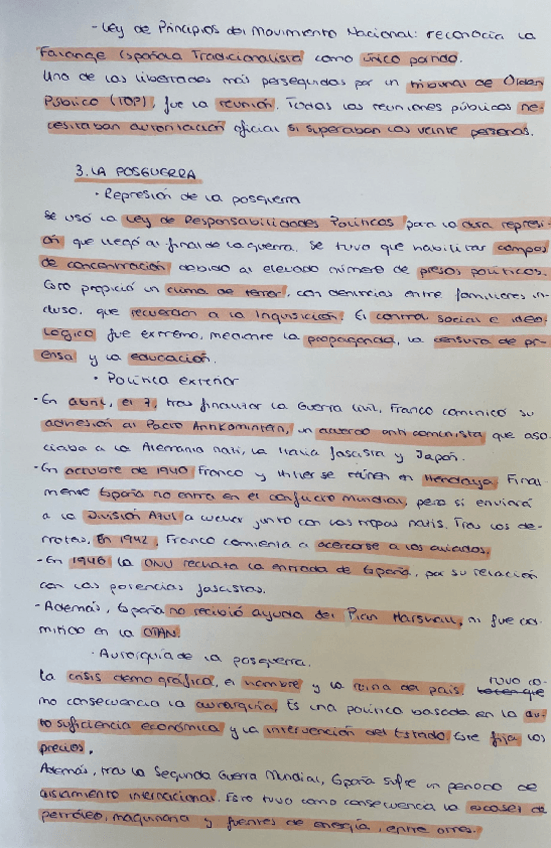 - Ley de Principios del Movimiento Nacional: reconocía la
Falange Española Tradicionalista como único partido.
Una de las libertades más perseguidas por un tribunal de Orden
Público (TOP), fue la reunión. Todas las reuniones públicas ne-
cesitaban autorización oficial si superaban las veinte personas.
3. LA POSGUERRA
· Represión de la posguerra
Se usó la Ley de Responsabilidades Políticas para la dura represi-
ón que llegó al final de la guerra. Se tuvo que habilitar campos
de concentración debido al elevado número de presos políticos.
Esto propició un clima de terror, con denuncias entre familiares in-
cluso, que recuerdan a la Inquisición. El control social e ideo-
lógico fue extremo, mediante la propaganda, la censura de pr-
ensa y la educación.
· Política exterior
- En abril, el 7, tras finalizar la Guerra Civil, Franco comunicó su
adhesión al Pacto Antikomintern, un acuerdo anticomunista que aso-
ciaba a la Alemania nazi, la Italia fascista y Japón.
- En octubre de 1940 Franco y Hitler se reúnen en Hendaya. Final-
mente España no entra en el conflicto mundial, pero si enviará
a la División Azul a luchar junto con las tropas nazis. Tras las de-
rrotas, en 1942, Franco comienza a acercarse a los aliados.
- En 1946 la ONU rechaza la entrada de España, por su relación
con las potencias fascistas.
- Además, España no recibió ayuda del Plan Marshall, ni fue ad-
mitido en la OTAN.
· Autarquía de la posguerra.
La crisis demográfica, el hambre y la ruina del país tuvo co-
mo consecuencia la autarquía. Es una política basada en la au-
to suficiencia económica y la intervención del Estado. Este fija los
precios.
Además, tras la Segunda Guerra Mundial, España sufre un periodo de
aislamiento internacional. Esto tuvo como consecuencia la escasez de
petróleo, maquinaria y fuentes de energía, entre otros.